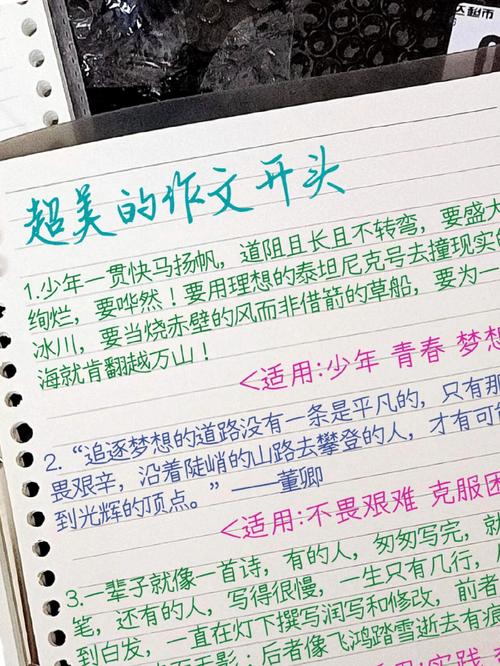 区超市
超美的作文开头
1.少年一贯快马扬帆，道阻且长且不转弯，要盛大
绚烂，要哗然！要用理想的泰坦尼克号去撞现实的
冰川，要当烧赤壁的风而非借箭的草船，要为一
海就肯翻越万山！
<适用:少年 青春 梦想
2.“追逐梦想的道路没有一条是平凡的，只有那
畏艰辛，沿着陡峭的山路去攀登的人，才有可
到光辉的顶点。”——董卿
<适用:不畏艰难 克服困
3.一辈子就像一首诗，有的人，匆匆写完，就
笔，还有的人，写得很慢，一生只有几行，
到白发，一直在灯下撰写润写和修改，前者
后者像飞鸿踏雪逝去有痕